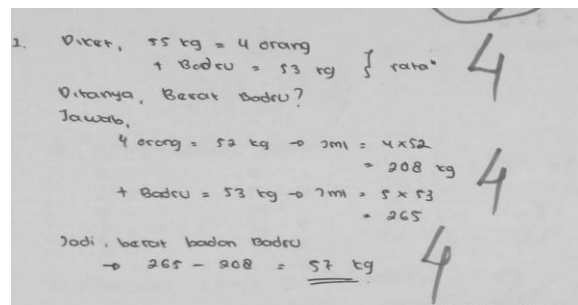 1. Diket, 55 kg = 4 orang
+ Badru = 53 kg } rata"
4
Ditanya, Berat Badru?
Jawab,
4 orang = 52 kg → Jml = 4 x 52
= 208 kg
4
+ Badru = 53 kg → Jml = 5 x 53
= 265
Jadi, berat badan Badru
→ 265 - 208 = 57 kg
4